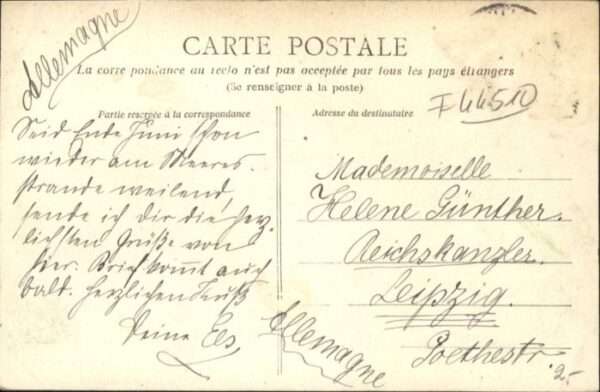 Allemagne
CARTE POSTALE
La correspondance au recto n'est pas acceptée par tous les pays étrangers
(Se renseigner à la poste)
Partie reservée à la correspondance
Adresse du destinataire
Seid Ende Juni schon
wieder am Meeres-
strande weilend,
sende ich dir die herz-
lichsten Grüße von
hier. Brief kommt auch
bald. Herzlichen Kuß
Deine Els
Mademoiselle
Helene Günther.
Reichskanzler.
Leipzig.
Goethestr.
Allemagne
2,-